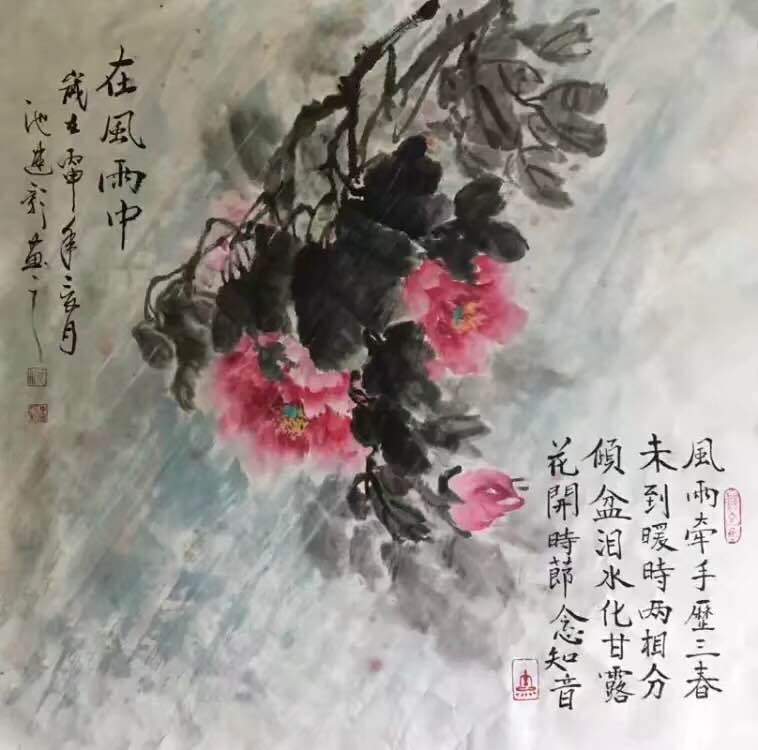 風雨牽手歷三春
未到暖時两相分
傾盆泪水化甘露
花開時節念知音
在風雨中
歲在丙申年二月
池建彩畫